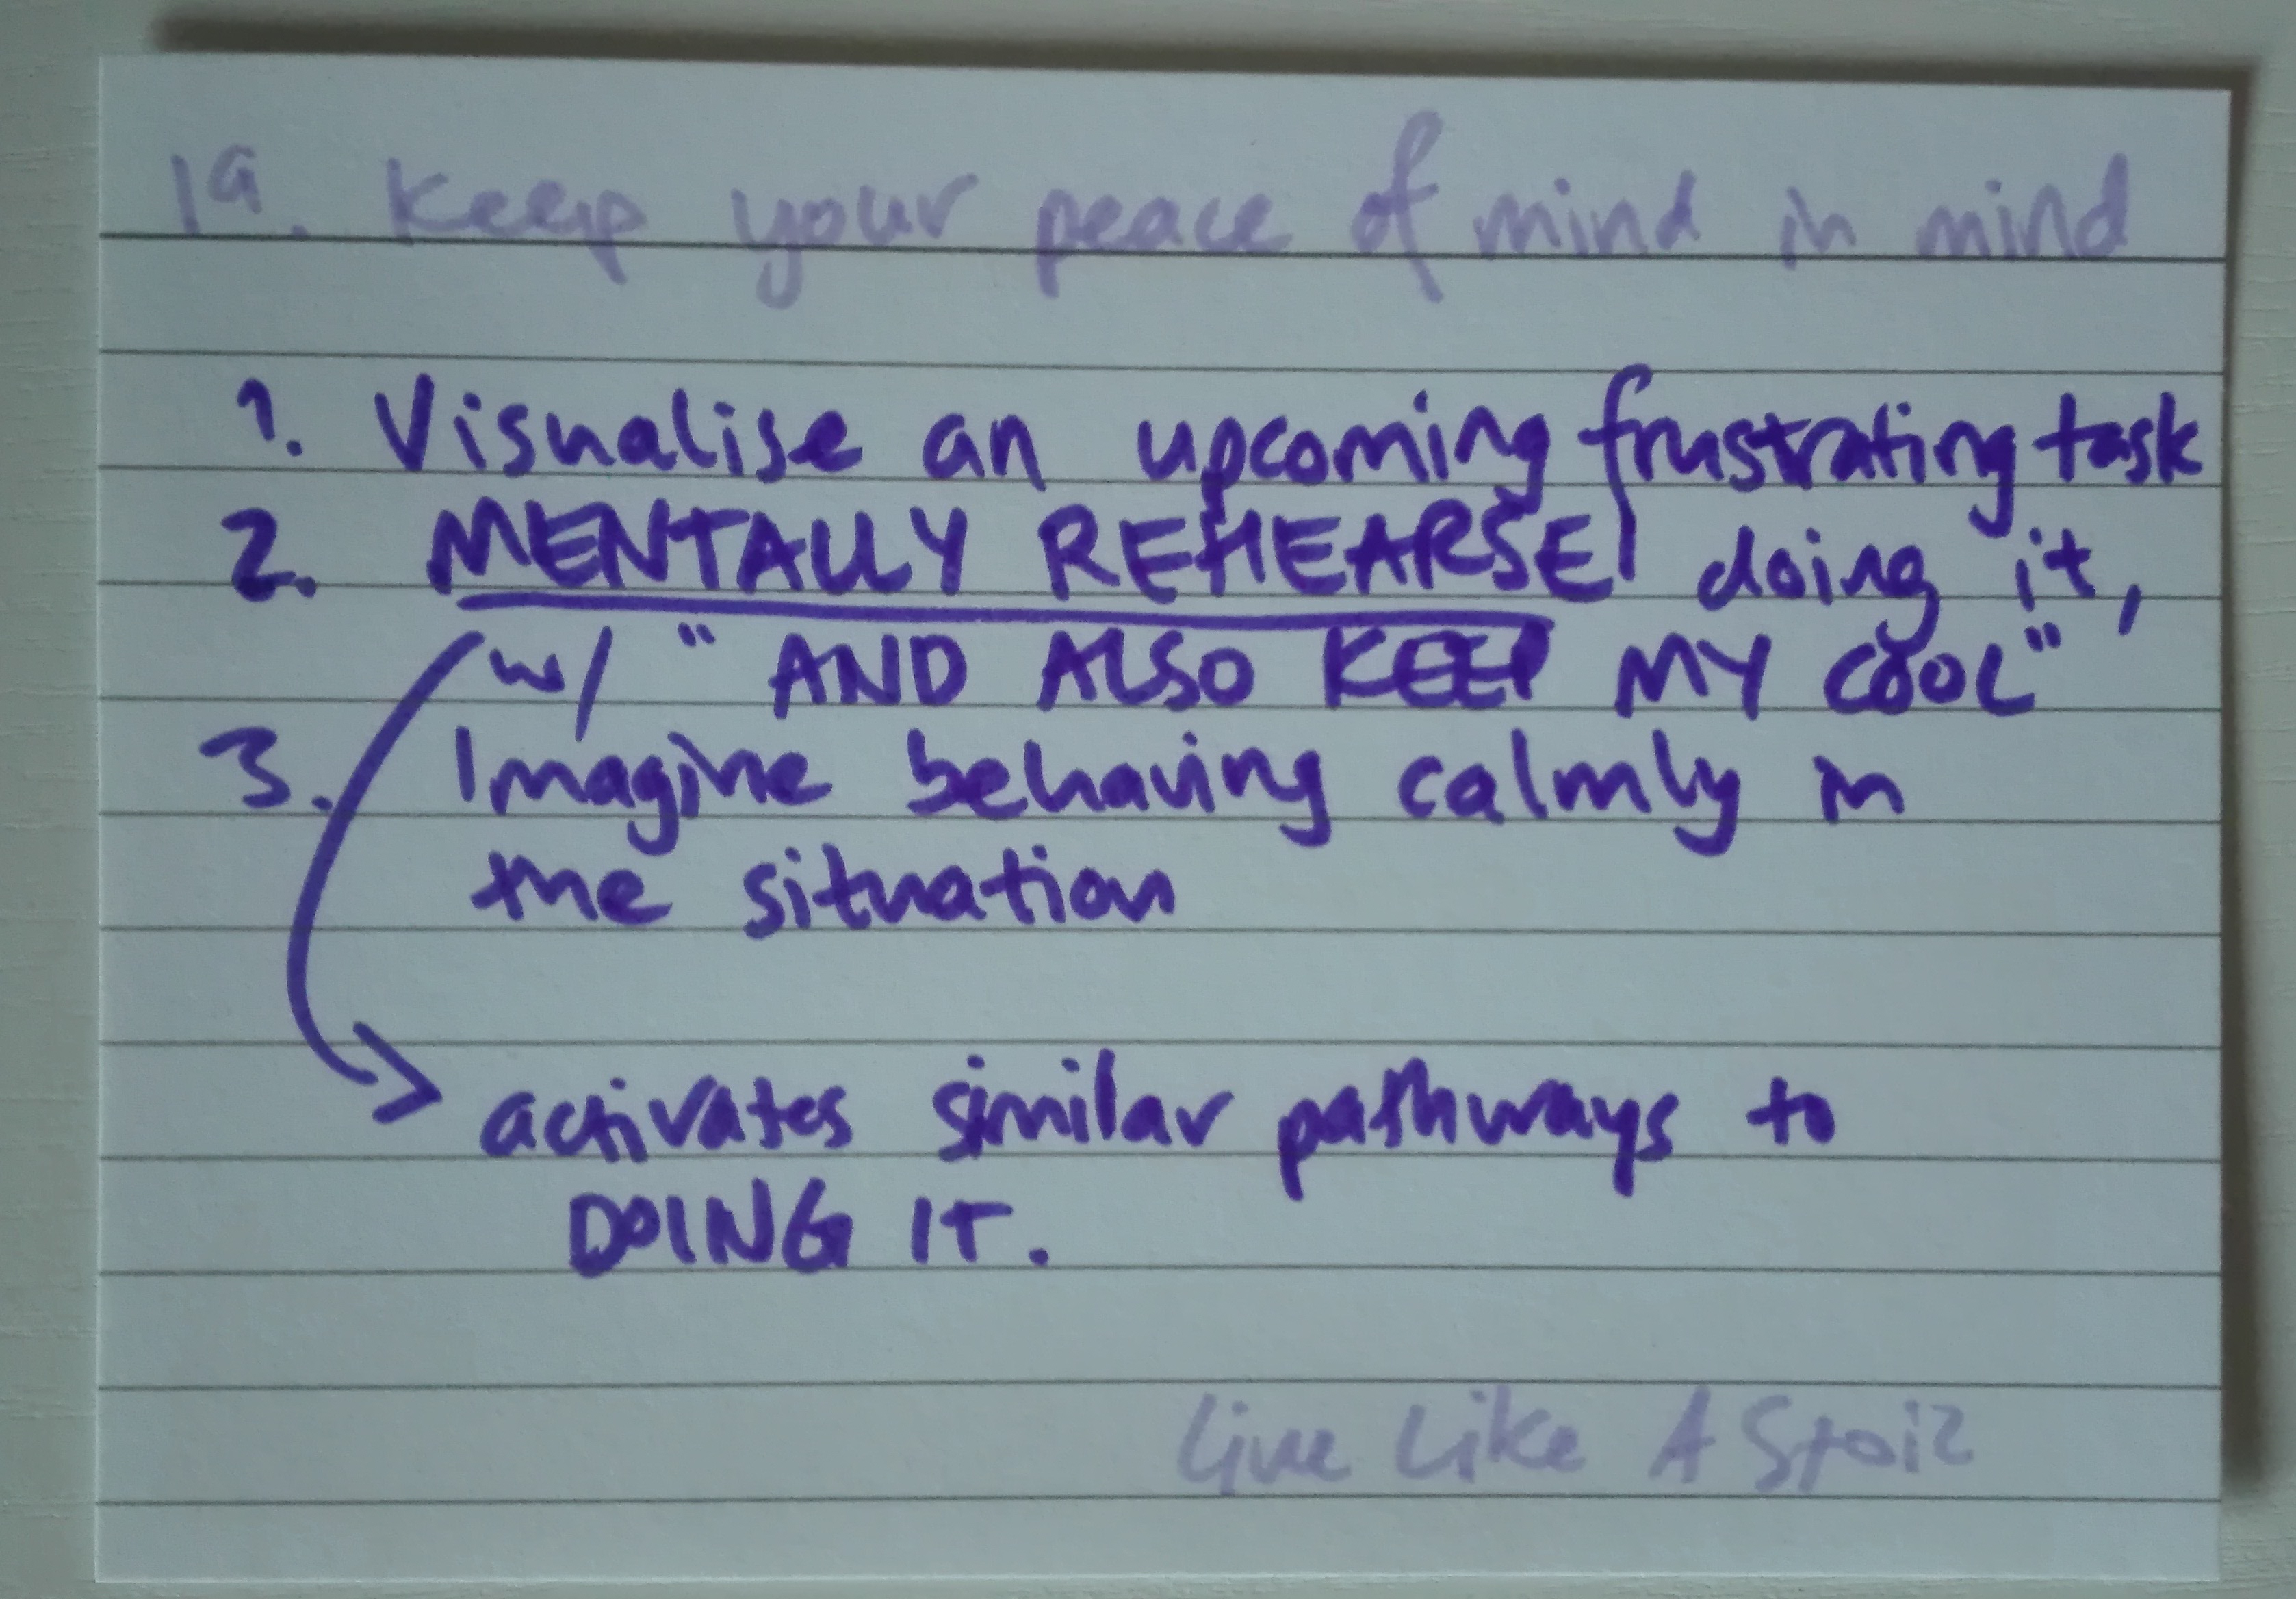 19. Keep your peace of mind in mind
1. Visualise an upcoming frustrating task
2. MENTALLY REHEARSE doing it,
w/ "AND ALSO KEEP MY COOL"
3. Imagine behaving calmly in
the situation
activates similar pathways to
DOING IT.
Live Like A Stoic